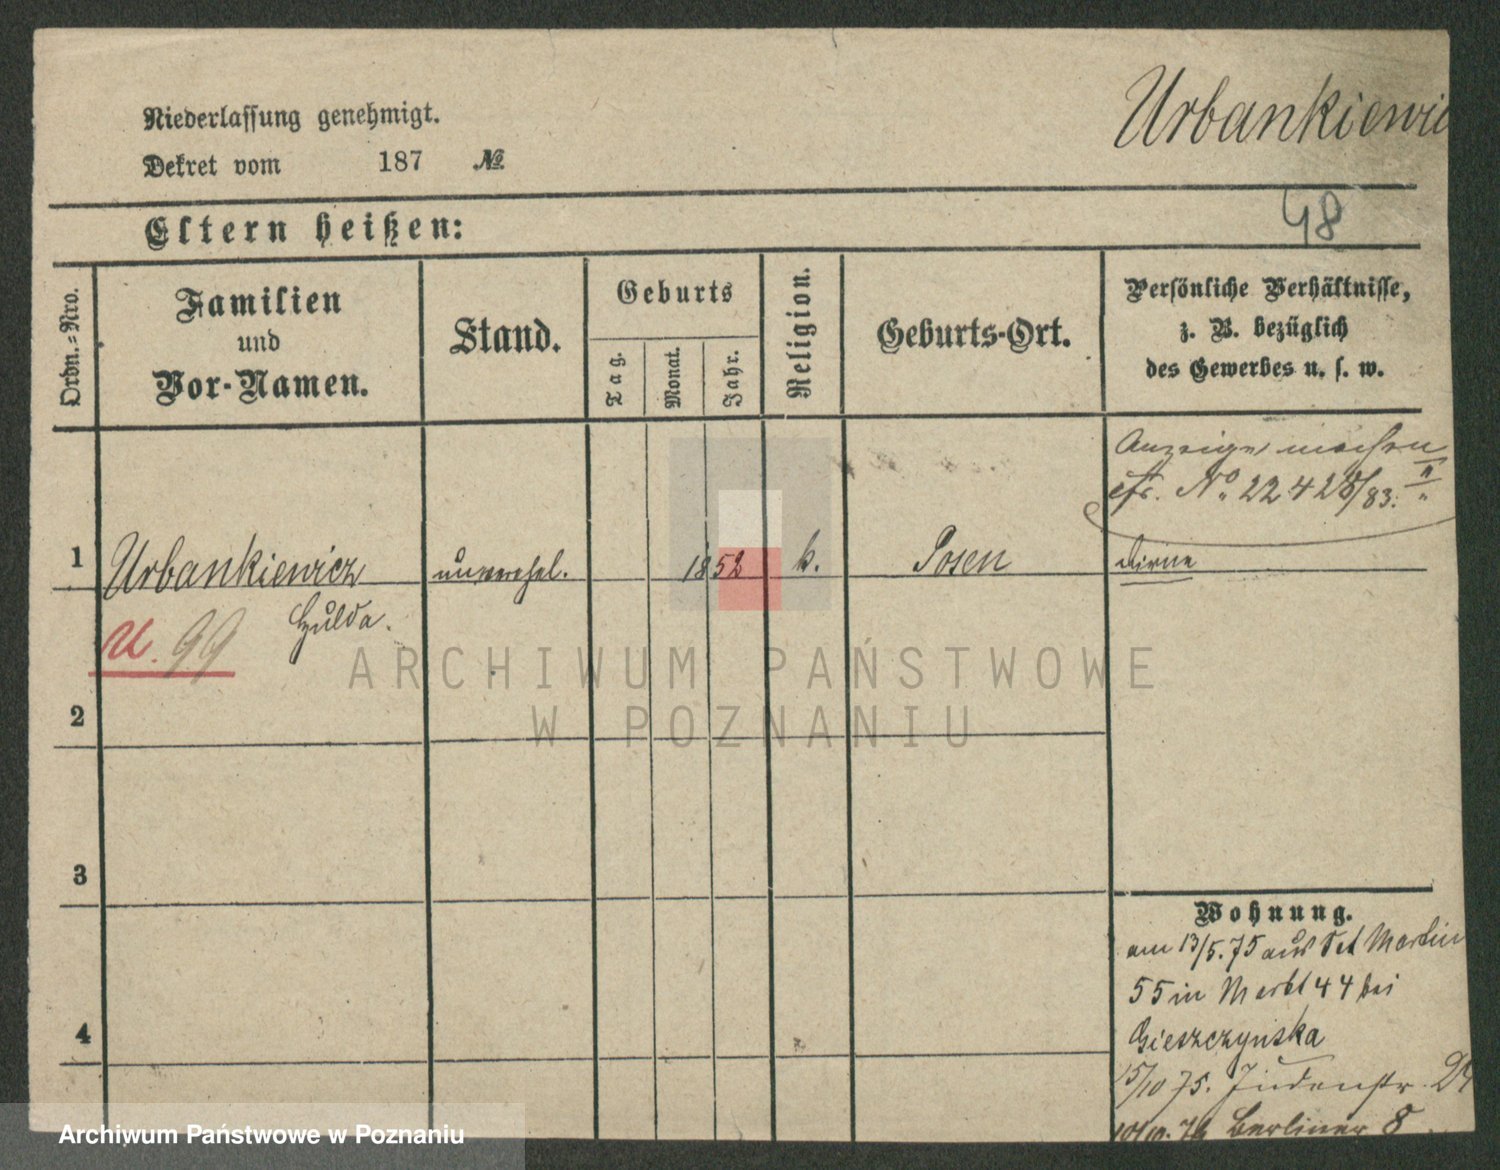 Urbankiewic
Niederlassung genehmigt.
Dekret vom 187 №
48
Eltern heißen:
Ordn.-Nro.
Familien
und
Vor-Namen.
Stand.
Geburts
Tag.
Monat.
Jahr.
Religion.
Geburts-Ort.
Persönliche Verhältnisse,
z. B. bezüglich
des Gewerbes u. s. w.
Anzeige machen
cfr. No. 22428/83.
1 Urbankiewicz unverehel. 1852 k. Posen Dirne
Hulda.
U. 99
2
3
4
Wohnung.
am 13/5.75 aus Sct Martin
55 in Markt 44 bei
Gieszczynska
15/10 75. Judenstr.
Berliner 8
ARCHIWUM PAŃSTWOWE
W POZNANIU
Archiwum Państwowe w Poznaniu